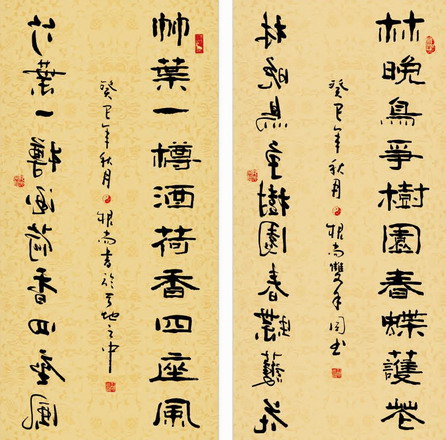 林晚鳥爭樹園春蝶護花
癸巳年秋月根尚雙手同书
林晚鳥爭樹園春蝶護花
竹葉一樽酒荷香四座風
癸巳年秋月根尚書於天地之中
竹葉一樽酒荷香四座風